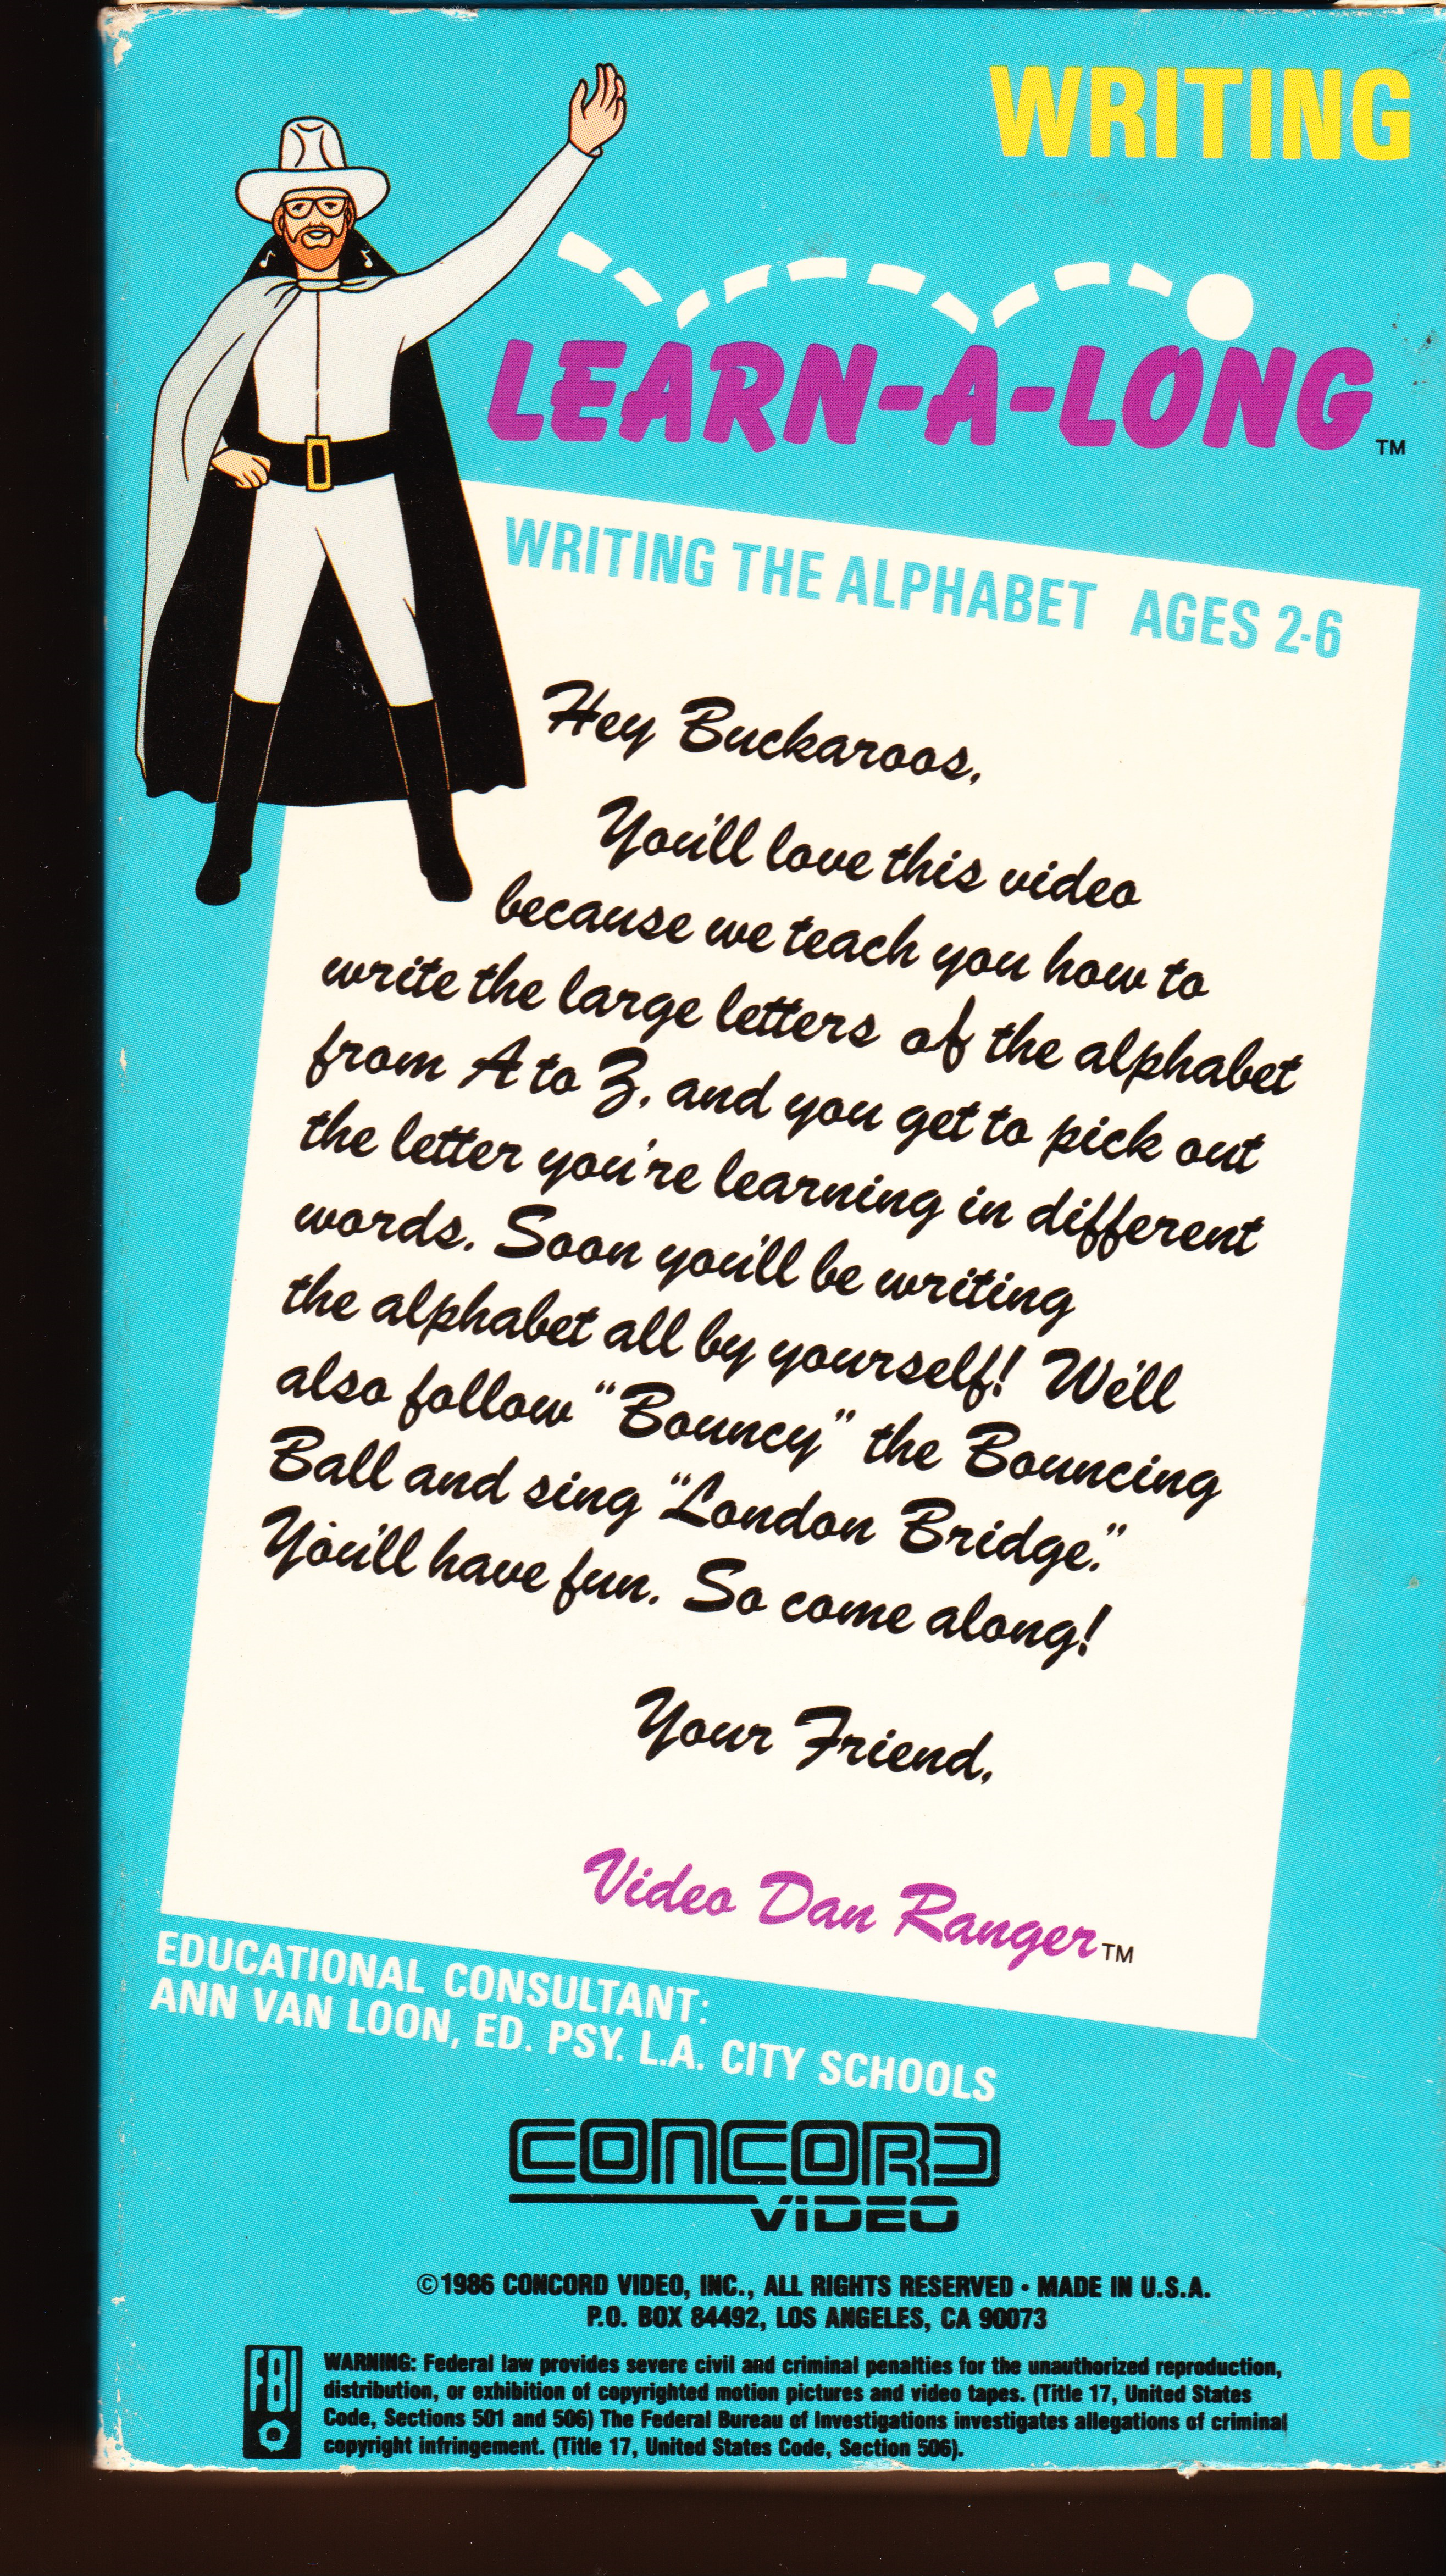 WRITING
LEARN-A-LONG™
WRITING THE ALPHABET AGES 2-6
Hey Buckaroos,
You'll love this video
because we teach you how to
write the large letters of the alphabet
from A to Z, and you get to pick out
the letter you're learning in different
words. Soon you'll be writing
the alphabet all by yourself! We'll
also follow "Bouncy" the Bouncing
Ball and sing "London Bridge."
You'll have fun. So come along!
Your Friend,
Video Dan Ranger™
EDUCATIONAL CONSULTANT:
ANN VAN LOON, ED. PSY. L.A. CITY SCHOOLS
CONCORD
VIDEO
©1986 CONCORD VIDEO, INC., ALL RIGHTS RESERVED • MADE IN U.S.A.
P.O. BOX 84492, LOS ANGELES, CA 90073
FBI
WARNING: Federal law provides severe civil and criminal penalties for the unauthorized reproduction,
distribution, or exhibition of copyrighted motion pictures and video tapes. (Title 17, United States
Code, Sections 501 and 506) The Federal Bureau of Investigations investigates allegations of criminal
copyright infringement. (Title 17, United States Code, Section 506).